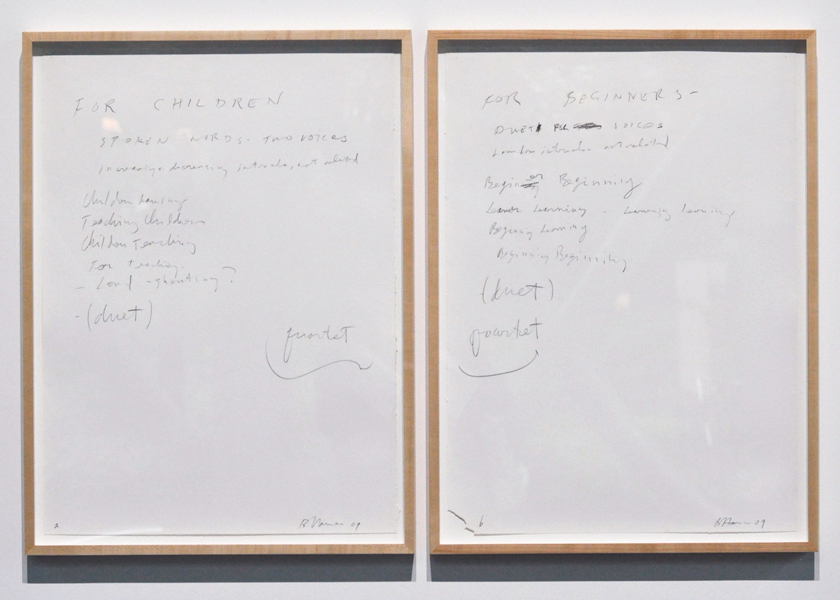 FOR CHILDREN
SPOKEN WORDS - TWO VOICES
Increasing decreasing intervals, not related
Children Learning
Teaching Children
Children Teaching
For Teaching
- Loud - shouting?
- (duet)
quartet
a
09
FOR BEGINNERS -
DUET FOR VOICES
not related
Beginning Beginning
Learning - Learning learning
Beginning Learning
Beginning Beginning
(duet)
quartet
b
09